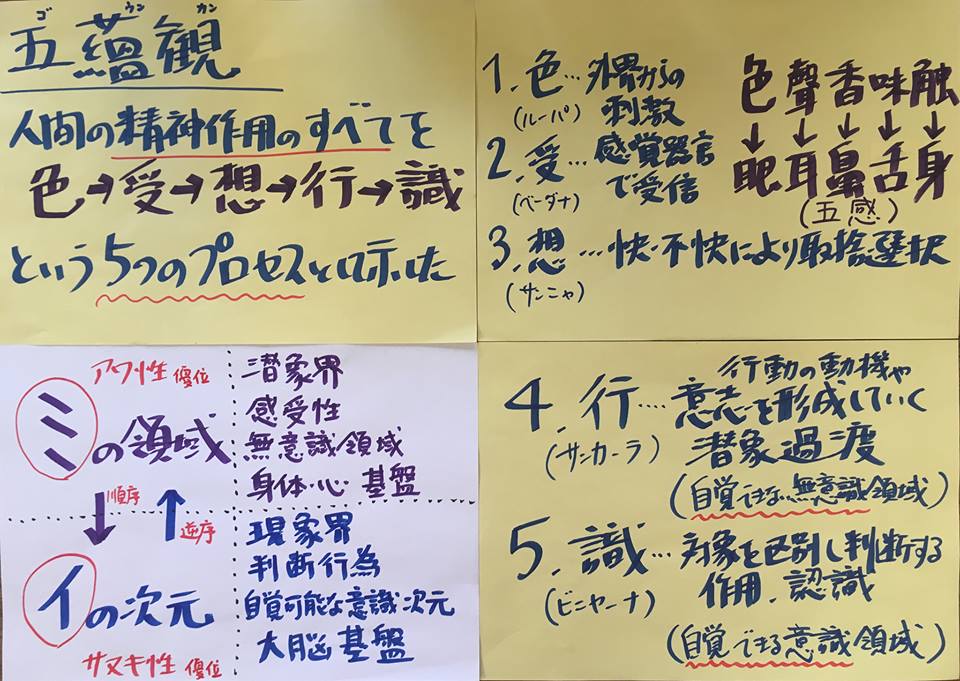 ゴ ウン カン
五蘊観
人間の精神作用のすべてを
色→受→想→行→識
という5つのプロセスで示した
1.色…外界からの
(ルーパ) 刺激
2.受…感覚器官
(ベーダナ) で受信
3.想…快・不快により取捨選択
(サンニャ)
色聲香味触
↓↓↓↓↓
眼耳鼻舌身
(五感)
アワ性優位
ミの領域
順序 逆序
イの次元
サヌキ性優位
潜象界
感受性
無意識領域
身体・心 基盤
現象界
判断行為
自覚可能な意識次元
大脳基盤
4.行…行動の動機や
(サンカーラ) 意志を形成していく
潜象過渡
(自覚できない無意識領域)
5.識…対象を区別し判断する
(ビニヤーナ) 作用、認識
(自覚できる意識領域)